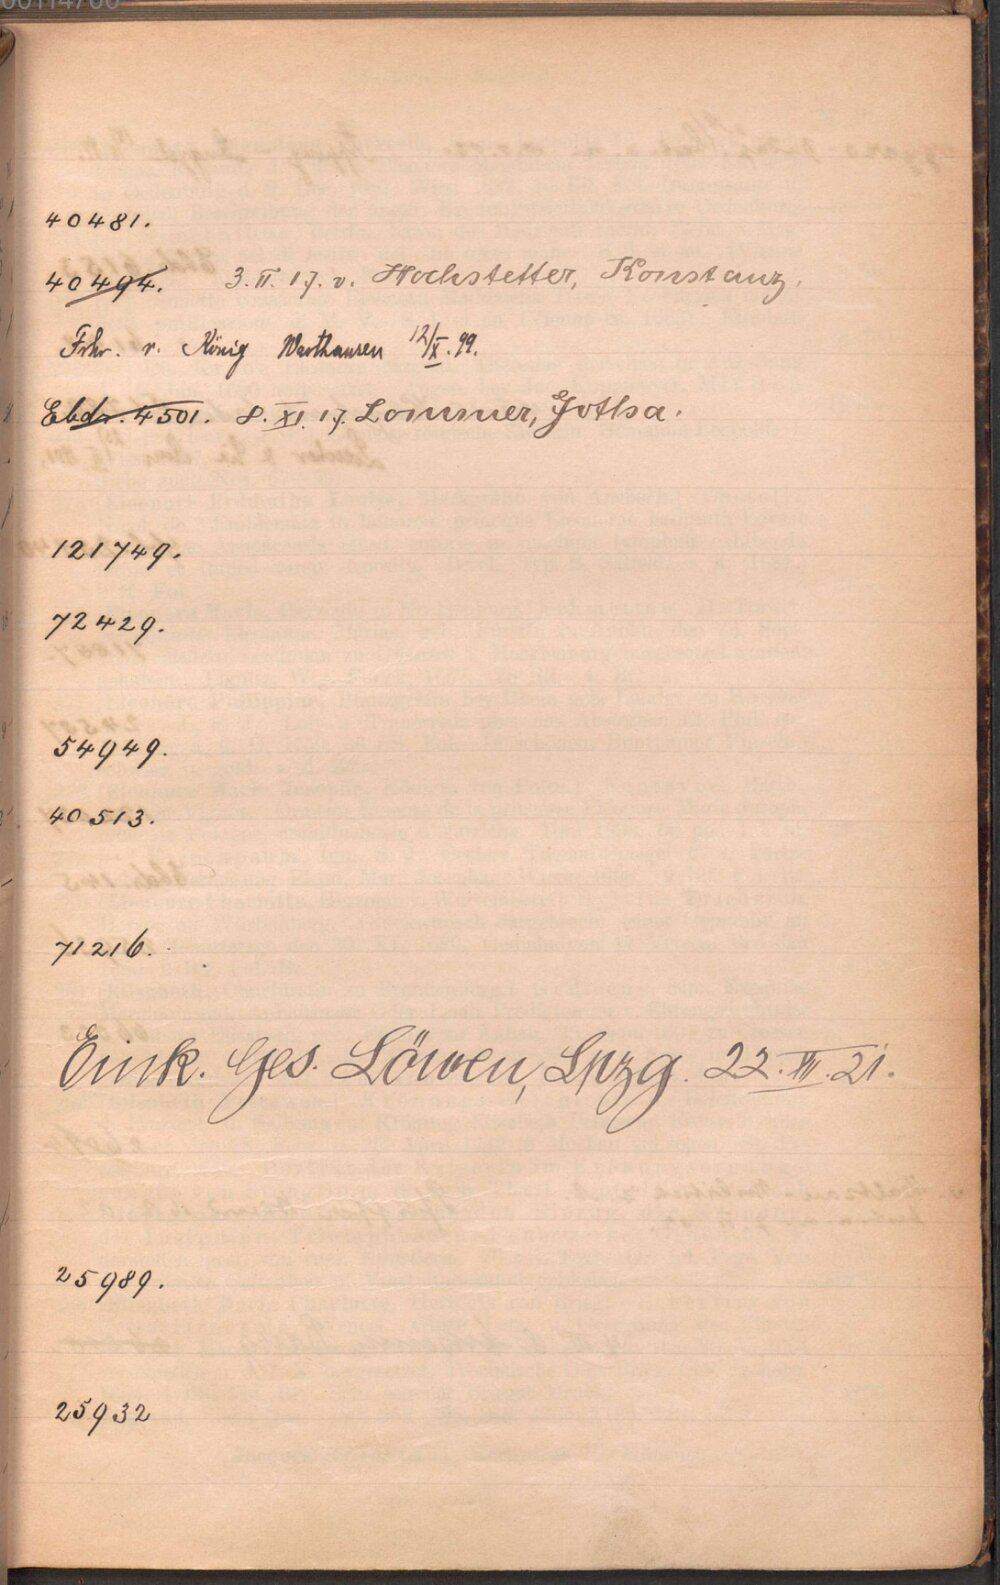 40481.
40494. 3.II.17. v. Hochstetter, Konstanz.
Frhr. v. König Warthausen 12/X.99.
Ebdr. 4501. 8.XI.17. Lommer, Gotha.
121749.
72429.
54949.
40513.
71216.
Eink. Ges. Löwen, Lpzg. 22.III.21.
25989.
25932